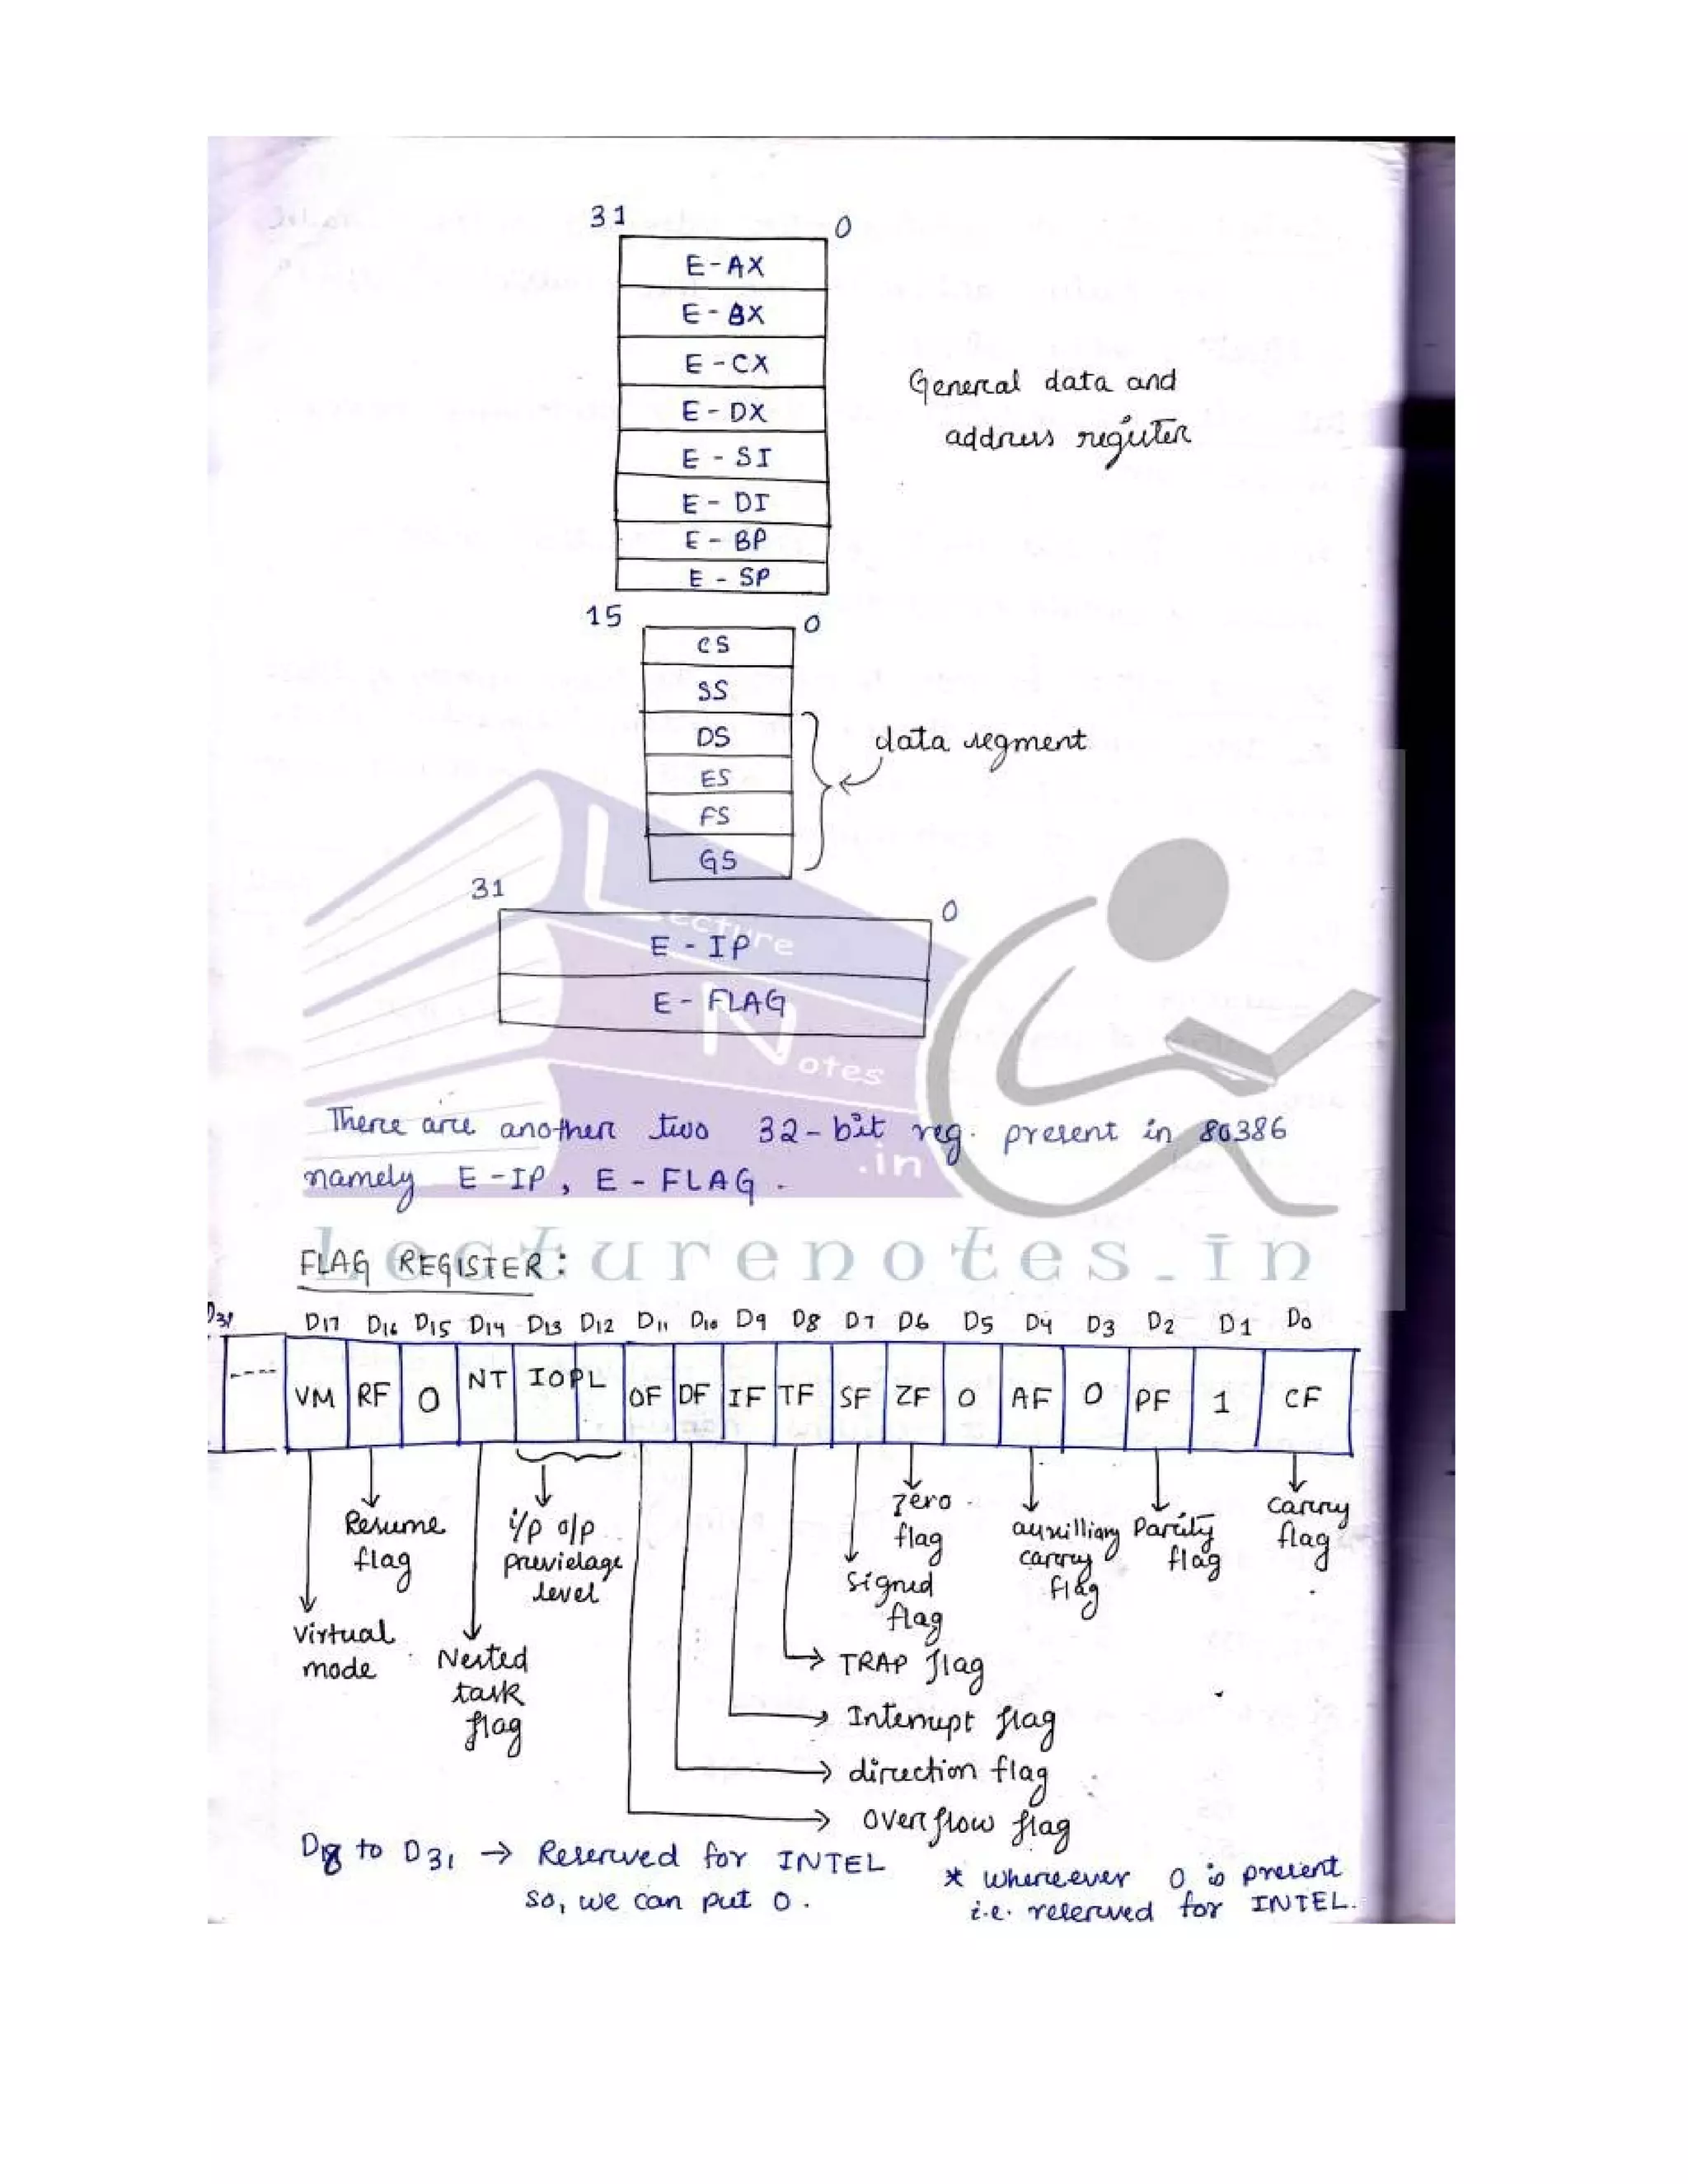 31 0
E-AX
E-BX
E-CX
E-DX
E-SI
E-DI
E-BP
E-SP
General data and
address register
15 0
CS
SS
DS
ES
FS
GS
data segment
31 0
E-IP
E-FLAG
Lecture
Notes
.in
There are another two 32-bit reg. present in 80386
namely E-IP, E-FLAG.
Lecturenotes.in
FLAG REGISTER:
D31 D17 D16 D15 D14 D13 D12 D11 D10 D9 D8 D7 D6 D5 D4 D3 D2 D1 D0
---- VM RF 0 NT IOPL OF DF IF TF SF ZF 0 AF 0 PF 1 CF
Resume
flag
i/p o/p
previelage
level
Zero
flag
auxilliary
carry
flag
Parity
flag
Carry
flag
Signed
flag
Virtual
mode
Nested
task
flag
TRAP flag
Interrupt flag
direction flag
Overflow flag
D18 to D31 → Reserved for INTEL
so, we can put 0.
* whereever 0 is present
i.e. reserved for INTEL.